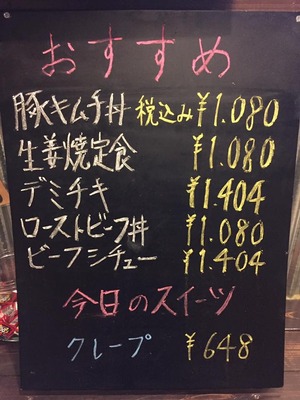 おすすめ
豚キムチ丼 税込み ¥1.080
生姜焼定食 ¥1.080
デミチキ ¥1.404
ローストビーフ丼 ¥1.080
ビーフシチュー ¥1.404
今日のスイーツ
クレープ ¥648